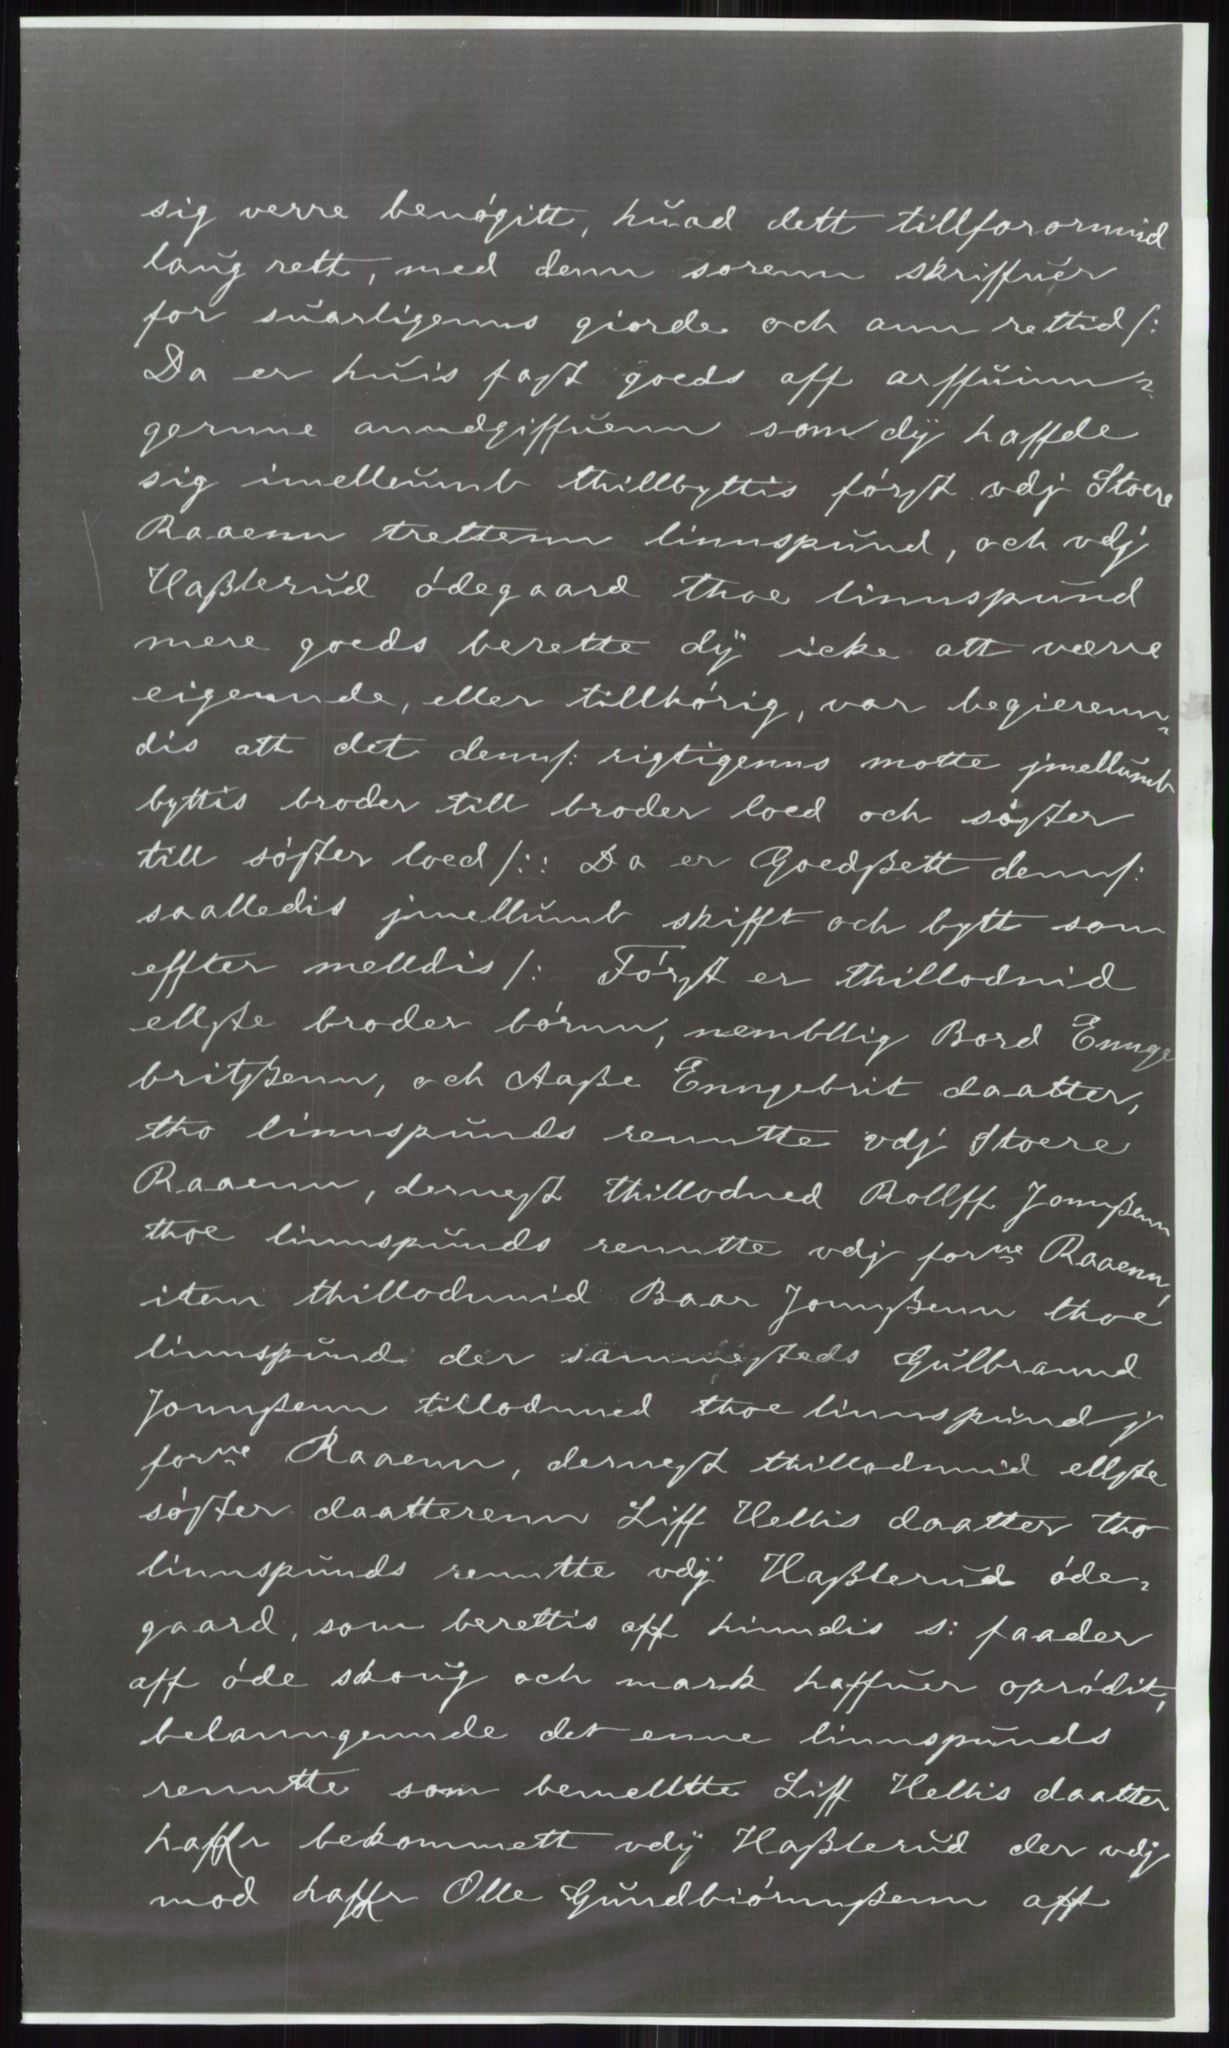 sig verre benøgitt, huad dett tillforormid
laug rett, med denn sorenn skriffuer
for suarligenns giorde och ann rettid/:
Da er huis fast goeds aff arffuinn=
gernne anndgiffuenn som dÿ haffde
sig imellumb thillbyttis først vdj Stoere
Raaenn trettenn linnspund, och vdj
Haßlerud ødegaard thoe linnspund
mere goeds berette dÿ icke att verre
eigennde, eller tillhørig, var begierenn=
dis att det denn/: rigtigenns motte jmellumb
byttis broder till broder loed och søster
till søster loed/:: Da er Goedßett denn/:
saalledis jmellumb skifft och bytt som
effter melldis/: Først er thillodnid
elste broder børnn, nembllig Bord Ennge
britßenn, och Aaße Enngebrit daatter,
tho linnspunds renntte vdj Stoere
Raaenn, dernest thillodned Rollff Jonnßenn
thoe linnspunds renntte vdj forne Raaenn,
item thillodnnid Baar Jonnßenn thoe
linnspund der sammesteds Gulbrannd
Jonnßenn tillodnned thoe linnspund j
forne Raaenn, dernest thillodnnid elste
søster daatterenn Liff Hellis daatter tho
linnspunds renntte vdÿ Haßlerud øde=
gaard, som berettis aff hinndis s: faader
aff øde skoug och mark haffuer oprødit,
belanngennde det enne linnspunds
renntte som bemelltte Liff Hellis daatter
haffr bekommett vdÿ Haßlerud der vdj
mod haffr Olle Gundbiørnnßenn aff